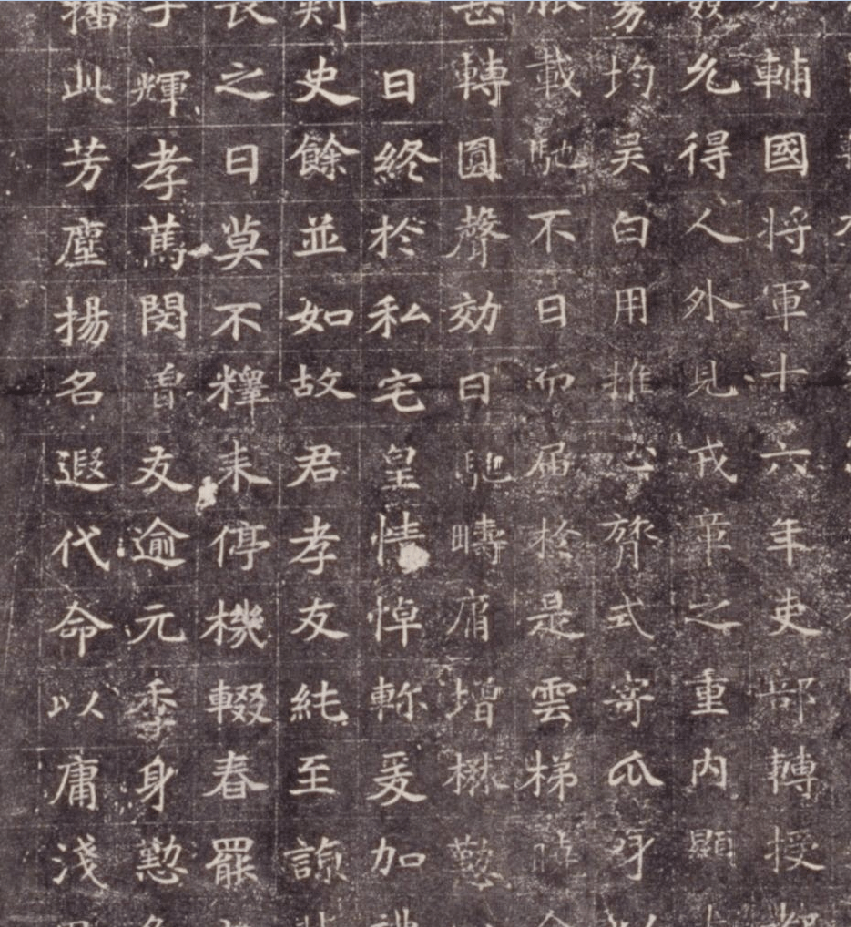 輔國將軍十六年吏部轉授
允得人外見戎章之重內顯
均吴白用推心膂式寄爪牙
載馳不日而届於是雲梯
轉圓聲効日馳疇庸增楙懃
日終於私宅皇情悼軫爰加
刾史餘並如故君孝友純至諒
之日莫不釋耒停機輟春罷
子輝孝蔫閔曾友逾元季身懃
播此芳塵揚名遐代命以庸淺